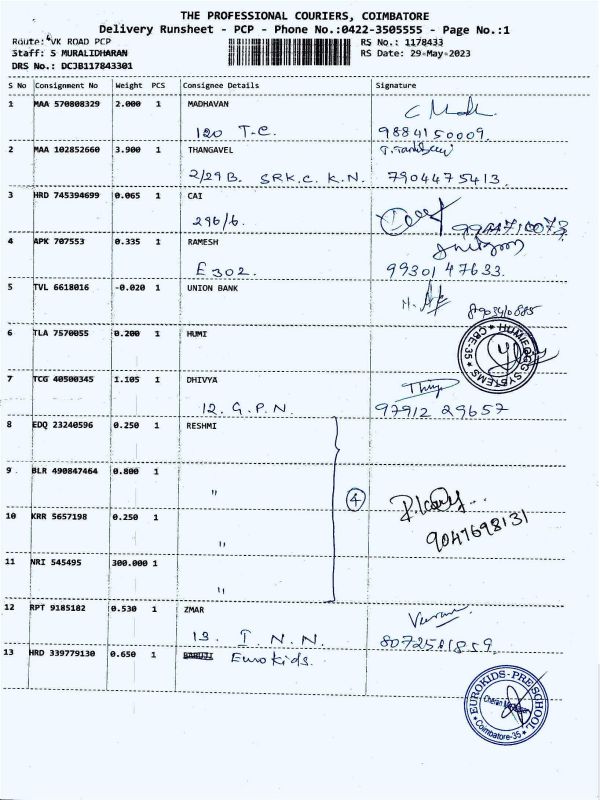 THE PROFESSIONAL COURIERS, COIMBATORE
Delivery Runsheet - PCP - Phone No.:0422-3505555 - Page No.:1
Route: VK ROAD PCP
RS No.: 1178433
Staff: S MURALIDHARAN
RS Date: 29-May-2023
DRS No.: DCJB117843301
S No Consignment No Weight PCS Consignee Details Signature
1 MAA 570808329 2.000 1 MADHAVAN
120 T.C. 9884150009.
2 MAA 102852660 3.900 1 THANGAVEL
2/29B. SRK.C. K.N. 7904475413.
3 HRD 745394699 0.065 1 CAI
296/6.
4 APK 707553 0.335 1 RAMESH
E302. 9930147633.
5 TVL 6618016 -0.020 1 UNION BANK
6 TLA 7570055 0.200 1 HUMI
HUMEGGG SYSTEMS
CBE-35
7 TCG 40500345 1.105 1 DHIVYA
12. G.P.N. 97912 29657
8 EDQ 23240596 0.250 1 RESHMI
9 BLR 490847464 0.800 1
"
4
10 KRR 5657198 0.250 1
9047698131
"
11 NRI 545495 300.000 1
"
12 RPT 9185182 0.530 1 ZMAR
13. I N.N.
13 HRD 339779130 0.650 1 Eurokids.
EUROKIDS-PRE SCHOOL
Coimbatore-35